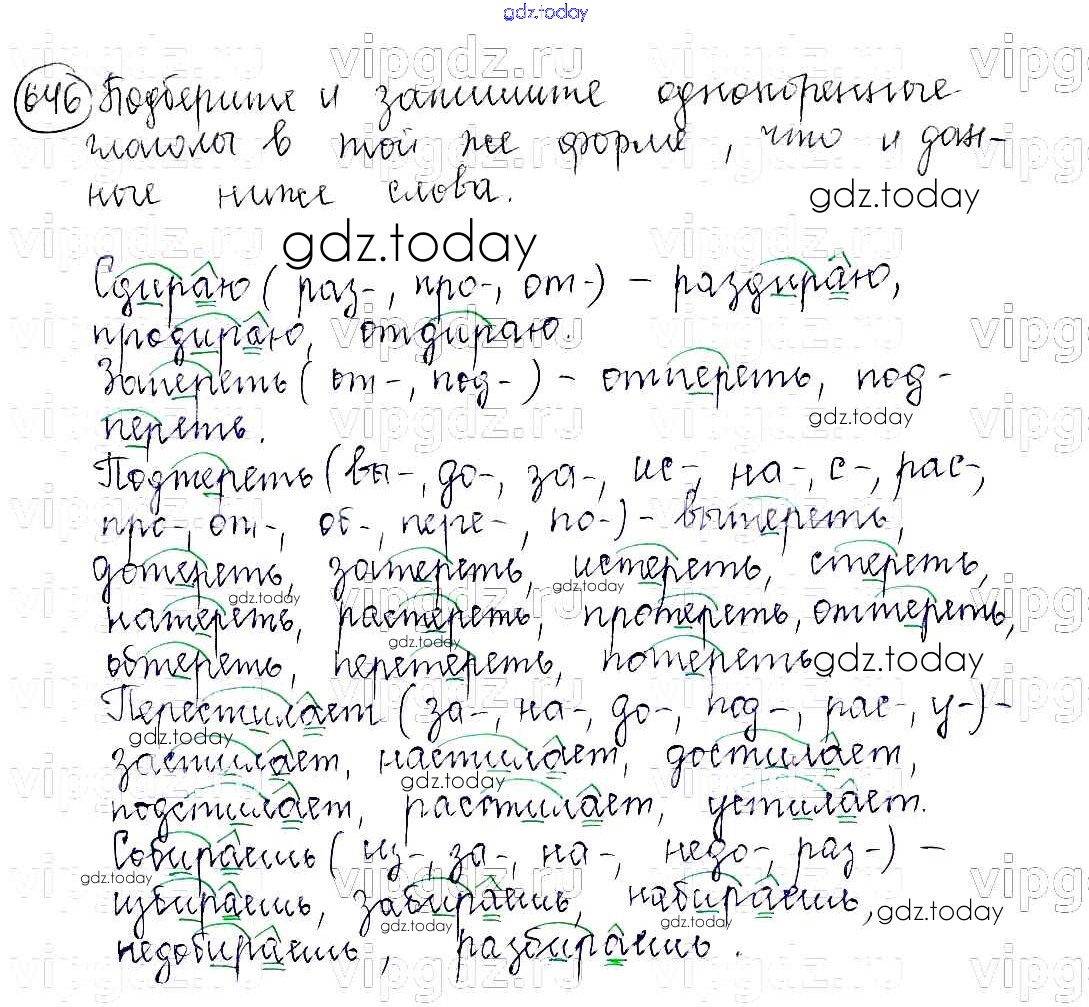 gdz.today
646 Подберите и запишите однокоренные
глаголы в той же форме, что и дан-
ные ниже слова.
gdz.today
gdz.today
Сдираю (раз-, про-, от-) - раздираю,
продираю, отдираю.
Затереть (от-, под-) - отпереть, под-
gdz.today
переть.
Подтереть (вы-, до-, за-, ис-, на-, с-, рас-,
про-, от-, об-, пере-, по-) - вытереть,
дотереть, затереть, истереть, стереть,
gdz.today gdz.today
натереть, растереть, протереть, оттереть,
gdz.today
обтереть, перетереть, потереть
gdz.today
Перестилает (за-, на-, до-, под-, рас-, у-) -
gdz.today
застилает, настилает, достилает,
gdz.today
подстилает, расстилает, устилает.
Собираешь (из-, за-, на-, недо-, раз-) -
gdz.today
избираешь, забираешь, набираешь,
gdz.today gdz.today gdz.today
недобираешь, разбираешь.